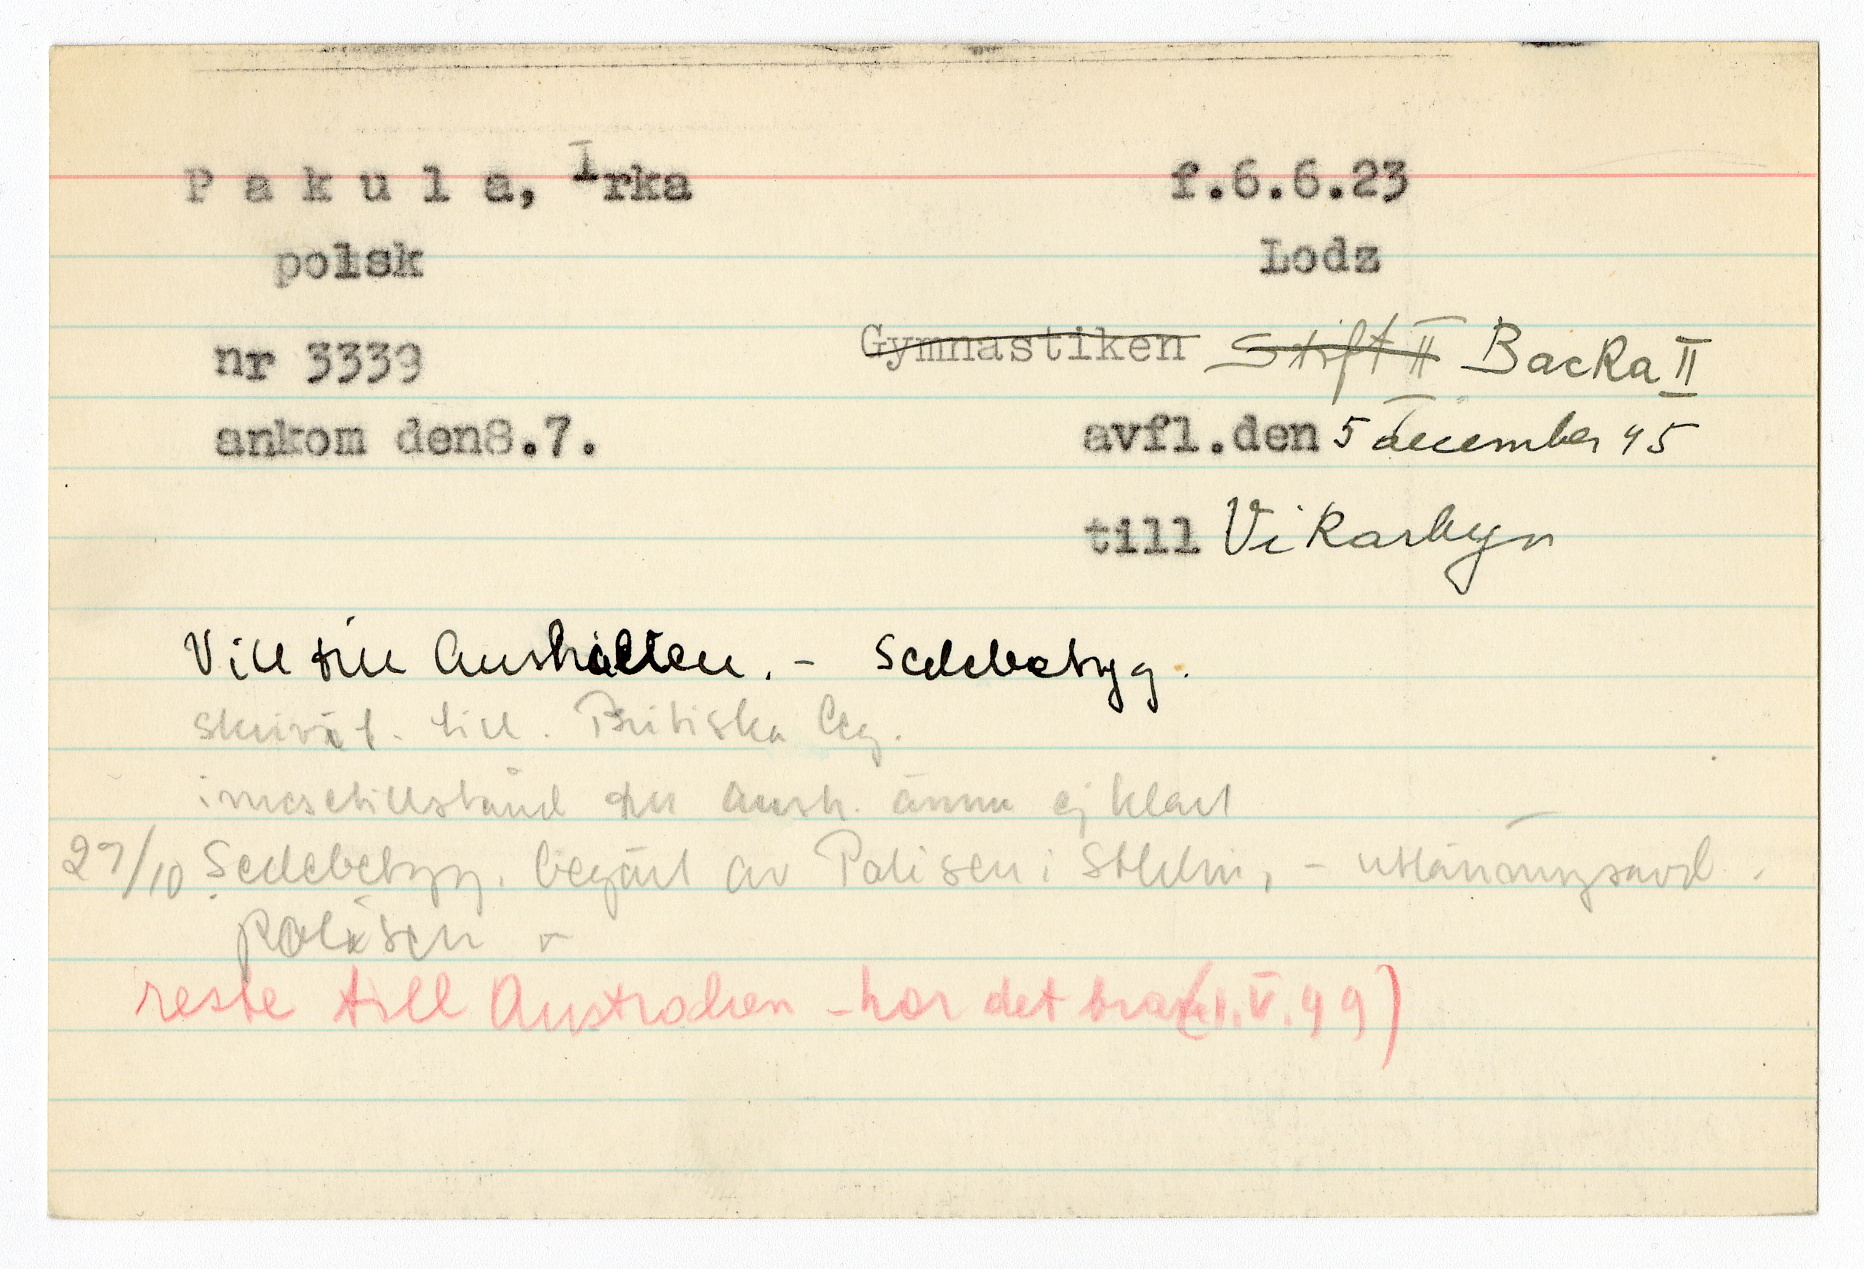 Pakula, Irka f.6.6.23
polsk Lodz
nr 3339 Gymnastiken Stift II Backa II
ankom den8.7. avfl.den 5 december 45
till Vikarbyn
Vill till Australien. - Sedebetyg.
skrivit. till. Britiska Leg.
inresetillstånd till Austr. ännu ej klart
29/10 Sedebetyg. begärt av Polisen i Sthlm, - utlänningsavd.
Polisen
reste till Australien - har det bra (1.V.49)